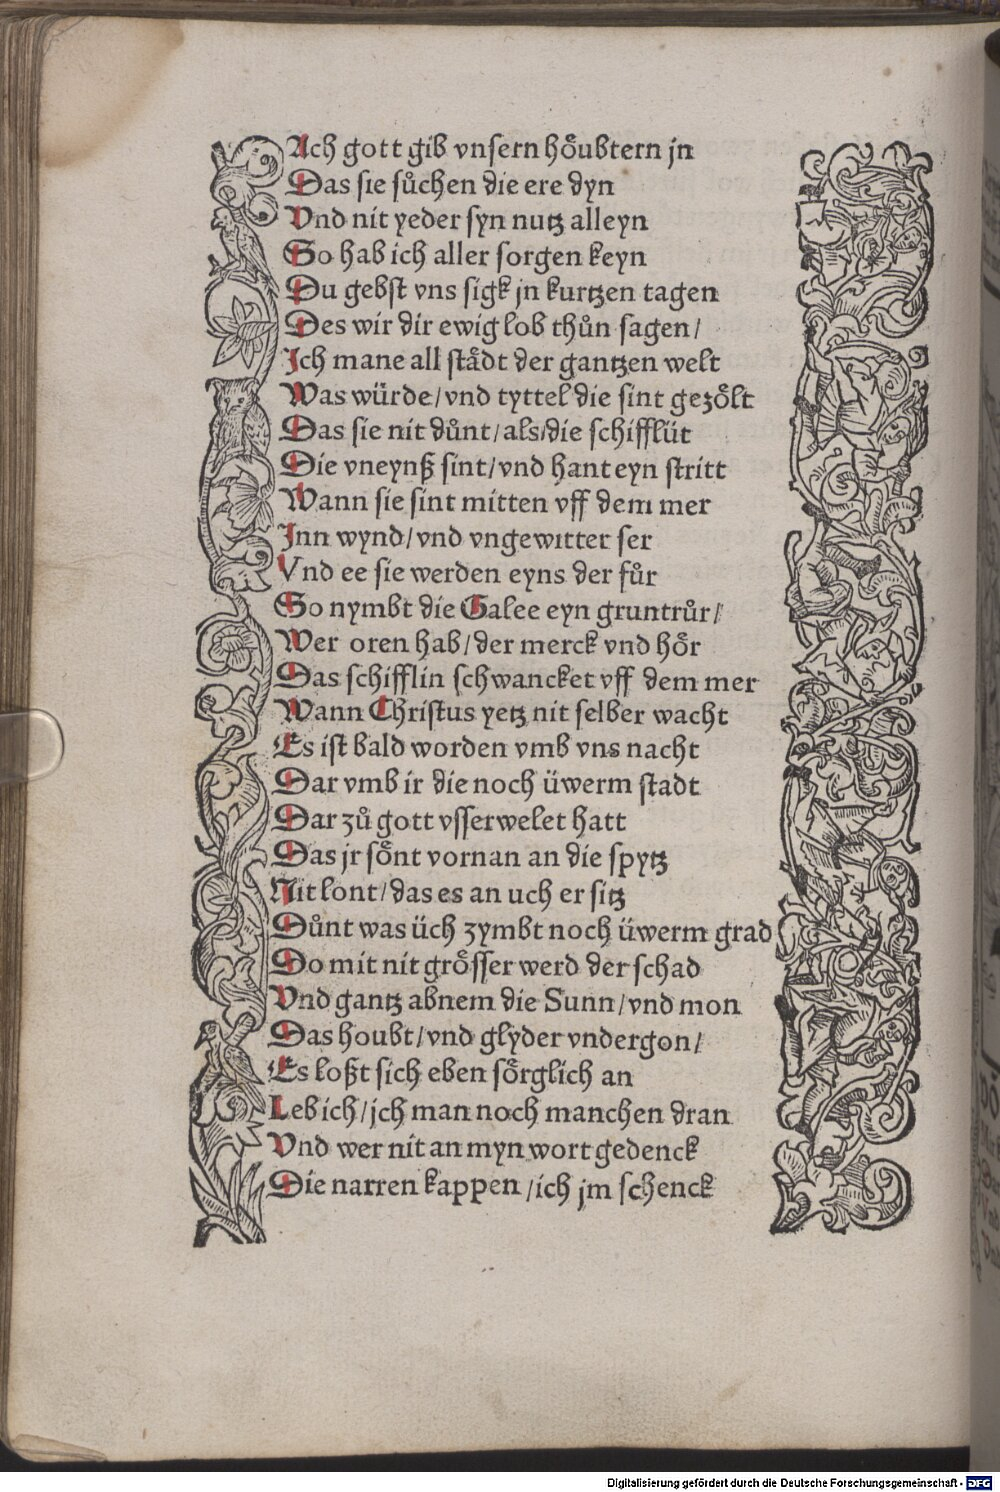 Ach gott gib vnsern hoͤubtern jn
Das sie suͦchen die ere dyn
Vnd nit yeder syn nutz alleyn
So hab ich aller sorgen keyn
Du gebst vns sigk jn kurtzen tagen
Des wir dir ewig lob thuͦn sagen/
Ich mane all staͤdt der gantzen welt
Was würde/vnd tyttel die sint gezoͤlt
Das sie nit duͦnt/als/die schifflüt
Die vneynß sint/vnd hant eyn stritt
Wann sie sint mitten vff dem mer
Inn wynd/vnd vngewitter ser
Vnd ee sie werden eyns der fuͦr
So nymbt die Galee eyn gruntruͦr/
Wer oren hab/der merck vnd hoͤr
Das schifflin schwancket vff dem mer
Wann Christus yetz nit selber wacht
Es ist bald worden vmb vns nacht
Dar vmb ir die noch üwerm stadt
Dar zuͦ gott vsserwelet hatt
Das jr soͤnt vornan an die spytz
Nit lont/das es an uch er sitz
Duͦnt was üch zymbt noch üwerm grad
Do mit nit groͤsser werd der schad
Vnd gantz abnem die Sunn/vnd mon
Das houbt/vnd glyder vndergon/
Es loßt sich eben soͤrglich an
Leb ich/jch man noch manchen dran
Vnd wer nit an myn wort gedenck
Die narren kappen/ich jm schenck
Digitalisierung gefördert durch die Deutsche Forschungsgemeinschaft - DFG